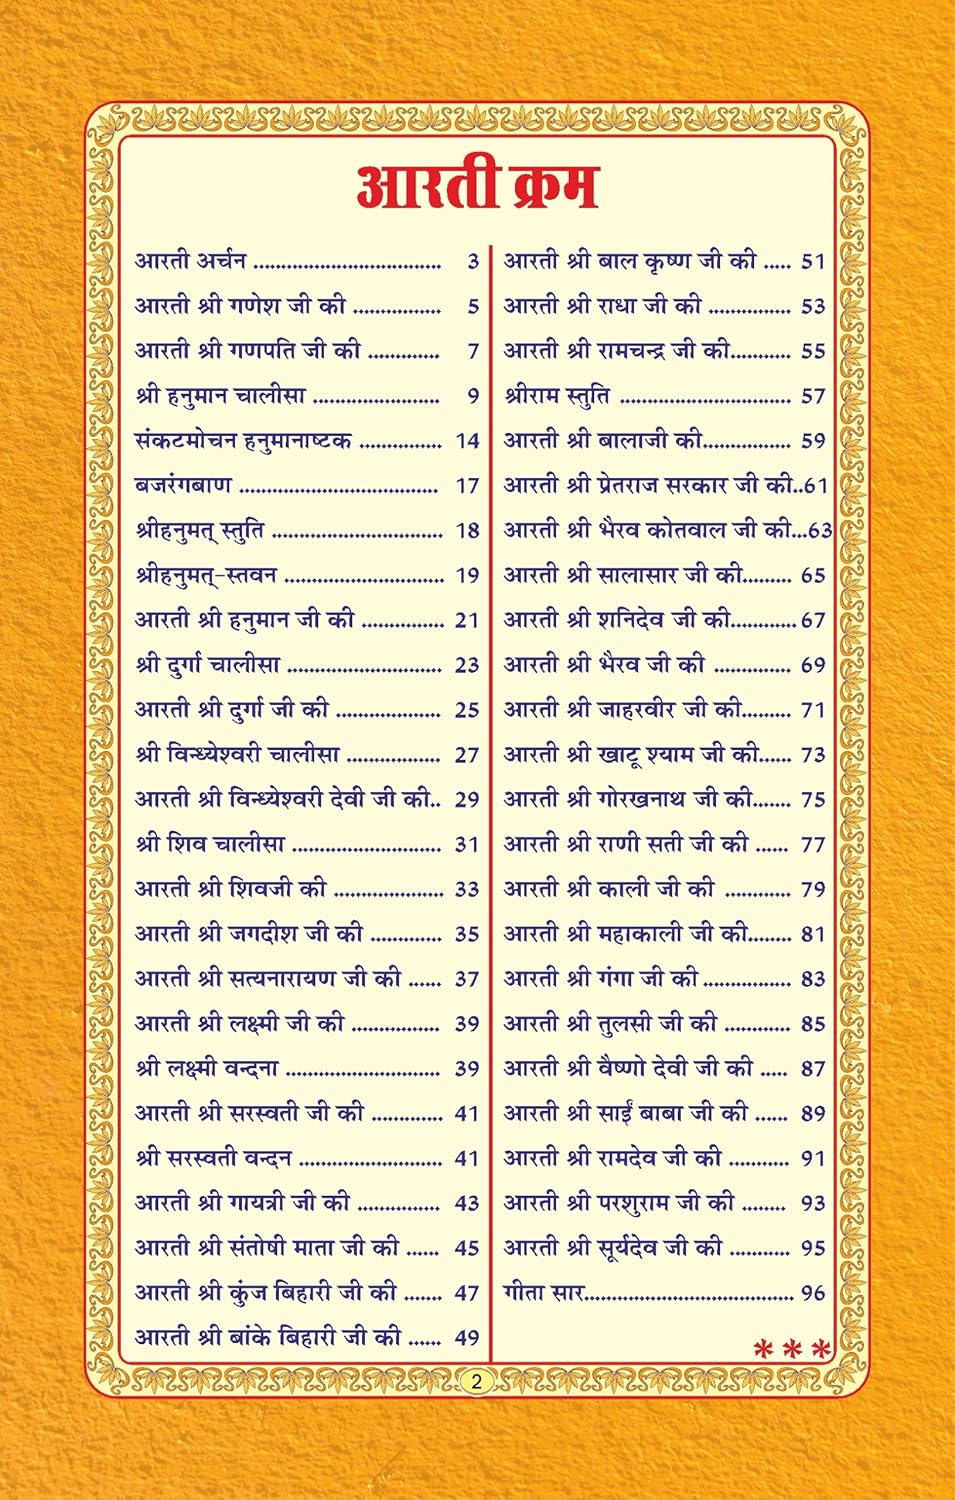 आरती क्रम
आरती अर्चन .................................. 3
आरती श्री गणेश जी की ................ 5
आरती श्री गणपति जी की ............. 7
श्री हनुमान चालीसा ....................... 9
संकटमोचन हनुमानाष्टक ............... 14
बजरंगबाण .................................... 17
श्रीहनुमत् स्तुति ............................... 18
श्रीहनुमत्-स्तवन ............................. 19
आरती श्री हनुमान जी की ............... 21
श्री दुर्गा चालीसा ............................ 23
आरती श्री दुर्गा जी की ................... 25
श्री विन्ध्येश्वरी चालीसा ................. 27
आरती श्री विन्ध्येश्वरी देवी जी की.. 29
श्री शिव चालीसा ........................... 31
आरती श्री शिवजी की .................... 33
आरती श्री जगदीश जी की ............. 35
आरती श्री सत्यनारायण जी की ...... 37
आरती श्री लक्ष्मी जी की ................ 39
श्री लक्ष्मी वन्दना ............................ 39
आरती श्री सरस्वती जी की ............. 41
श्री सरस्वती वन्दन .......................... 41
आरती श्री गायत्री जी की ............... 43
आरती श्री संतोषी माता जी की ...... 45
आरती श्री कुंज बिहारी जी की ....... 47
आरती श्री बांके बिहारी जी की ...... 49
आरती श्री बाल कृष्ण जी की ..... 51
आरती श्री राधा जी की ............... 53
आरती श्री रामचन्द्र जी की........... 55
श्रीराम स्तुति ............................... 57
आरती श्री बालाजी की................ 59
आरती श्री प्रेतराज सरकार जी की..61
आरती श्री भैरव कोतवाल जी की...63
आरती श्री सालासार जी की......... 65
आरती श्री शनिदेव जी की............ 67
आरती श्री भैरव जी की .............. 69
आरती श्री जाहरवीर जी की......... 71
आरती श्री खाटू श्याम जी की...... 73
आरती श्री गोरखनाथ जी की....... 75
आरती श्री राणी सती जी की ...... 77
आरती श्री काली जी की ............ 79
आरती श्री महाकाली जी की........ 81
आरती श्री गंगा जी की ................ 83
आरती श्री तुलसी जी की ............ 85
आरती श्री वैष्णो देवी जी की ..... 87
आरती श्री साईं बाबा जी की ...... 89
आरती श्री रामदेव जी की ........... 91
आरती श्री परशुराम जी की ........ 93
आरती श्री सूर्यदेव जी की ........... 95
गीता सार...................................... 96
***
2